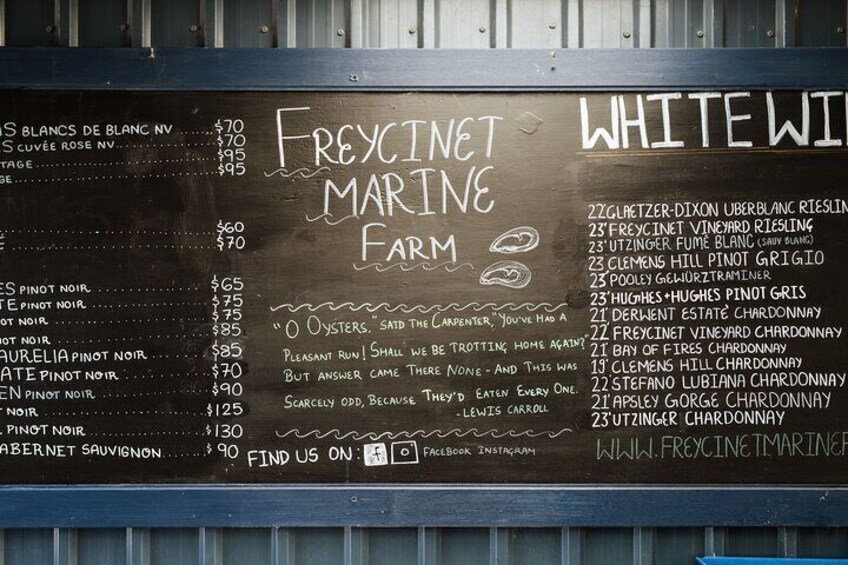 BLANCS DE BLANC NV $70
CUVÉE ROSE NV $70
$95
$95
$60
$70
PINOT NOIR $65
PINOT NOIR $75
NOIR $75
PINOT NOIR $85
AURELIA PINOT NOIR $85
PINOT NOIR $70
PINOT NOIR $90
NOIR $125
PINOT NOIR $130
CABERNET SAUVIGNON $90
FREYCINET
MARINE
FARM
"O OYSTERS," SAID THE CARPENTER, "YOU'VE HAD A
PLEASANT RUN! SHALL WE BE TROTTING HOME AGAIN?"
BUT ANSWER CAME THERE NONE - AND THIS WAS
SCARCELY ODD, BECAUSE THEY'D EATEN EVERY ONE.
-LEWIS CARROLL
FIND US ON: f FACEBOOK INSTAGRAM
WHITE WI
22' GLAETZER-DIXON UBERBLANC RIESLIN
23' FREYCINET VINEYARD RIESLING
23' UTZINGER FUMÉ BLANC (SAUV BLANC)
23' CLEMENS HILL PINOT GRIGIO
23' POOLEY GEWÜRZTRAMINER
23' HUGHES+HUGHES PINOT GRIS
21' DERWENT ESTATE CHARDONNAY
22' FREYCINET VINEYARD CHARDONNAY
21' BAY OF FIRES CHARDONNAY
19' CLEMENS HILL CHARDONNAY
22' STEFANO LUBIANA CHARDONNAY
21' APSLEY GORGE CHARDONNAY
23' UTZINGER CHARDONNAY
WWW.FREYCINETMARINEF